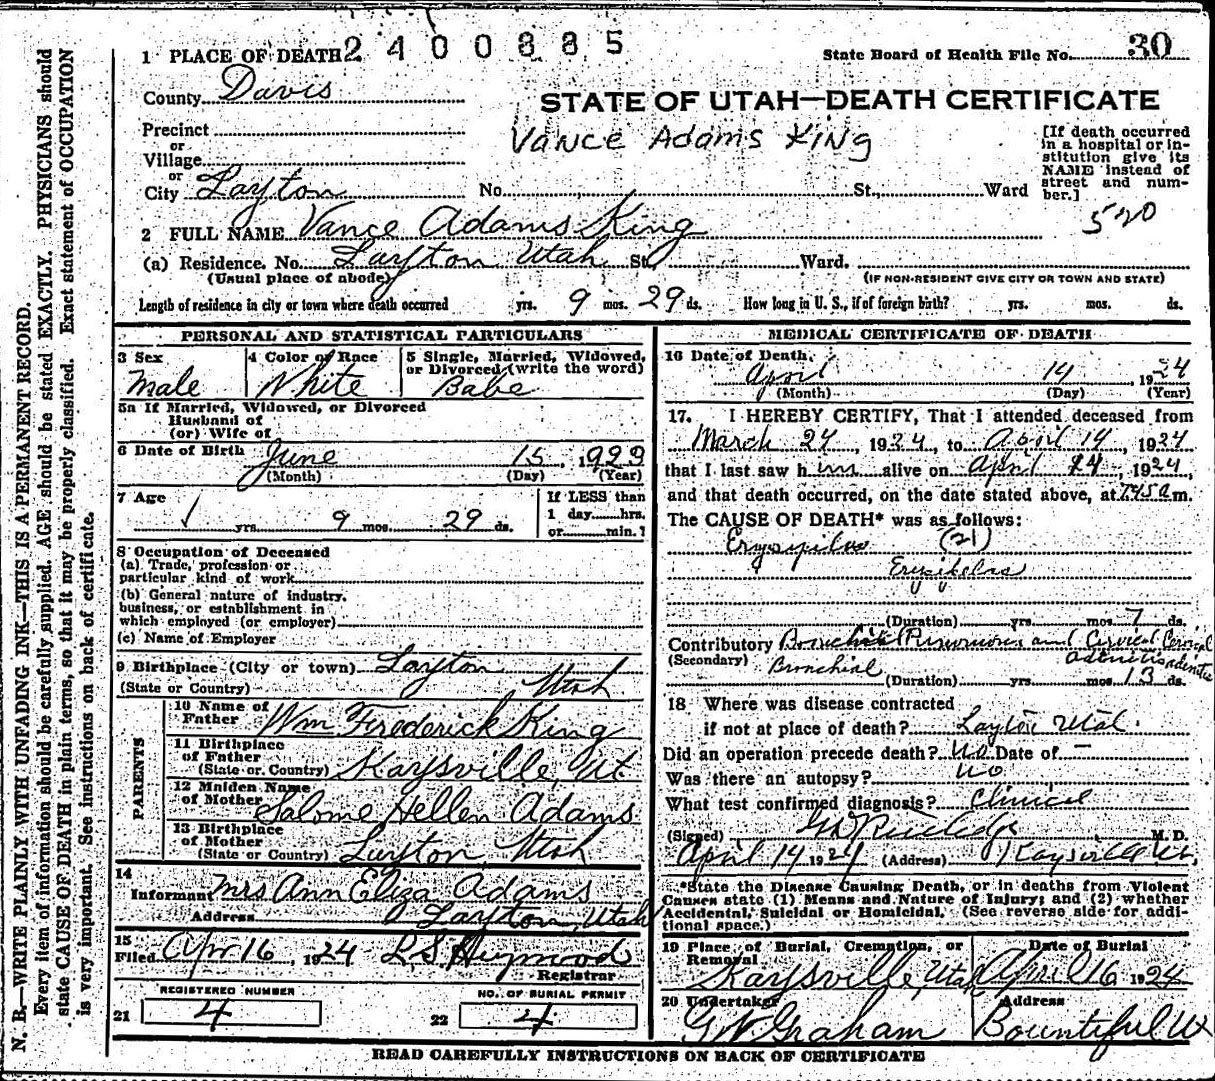 2400885
1 PLACE OF DEATH
State Board of Health File No. 30
County Davis
STATE OF UTAH—DEATH CERTIFICATE
Precinct
Vance Adams King
or
Village
or
City Layton No. St., Ward
[If death occurred
in a hospital or in-
stitution give its
NAME instead of
street and num-
ber.]
520
2 FULL NAME Vance Adams King
(a) Residence. No. Layton Utah St. Ward.
(Usual place of abode) (IF NON-RESIDENT GIVE CITY OR TOWN AND STATE)
Length of residence in city or town where death occurred yrs. 9 mos. 29 ds. How long in U. S., if of foreign birth? yrs. mos. ds.
PERSONAL AND STATISTICAL PARTICULARS
3 Sex 4 Color or Race 5 Single, Married, Widowed,
or Divorced (write the word)
Male White Babe
5a If Married, Widowed, or Divorced
Husband of
(or) Wife of
6 Date of Birth June 15, 1923
(Month) (Day) (Year)
7 Age
yrs. 9 mos. 29 ds.
If LESS than
1 day hrs.
or min.?
8 Occupation of Deceased
(a) Trade, profession or
particular kind of work
(b) General nature of industry,
business, or establishment in
which employed (or employer)
(c) Name of Employer
9 Birthplace (City or town) Layton
(State or Country) Utah
PARENTS
10 Name of
Father Wm Frederick King
11 Birthplace
of Father
(State or Country) Kaysville, Ut.
12 Maiden Name
of Mother Salome Hellen Adams
13 Birthplace
of Mother
(State or Country) Layton, Utah
14
Informant Mrs Ann Eliza Adams
Address Layton, Utah
15
Filed Apr 16, 1924
Registrar
REGISTERED NUMBER
21 4
NO. OF BURIAL PERMIT
22 4
MEDICAL CERTIFICATE OF DEATH
16 Date of Death
April 14, 1924
(Month) (Day) (Year)
17. I HEREBY CERTIFY, That I attended deceased from
March 24, 1924, to April 14, 1924
that I last saw him alive on April 14, 1924,
and that death occurred, on the date stated above, at m.
The CAUSE OF DEATH* was as follows:
(21)
Erysipelas
(Duration) yrs. mos. 7 ds.
Contributory and Cervical
(Secondary) Bronchial
(Duration) yrs. mos. 13 ds.
18 Where was disease contracted
if not at place of death? Layton Utah.
Did an operation precede death? No Date of —
Was there an autopsy? No
What test confirmed diagnosis? Clinical
(Signed) M. D.
April 14 1924 (Address) Kaysville Ut.
*State the Disease Causing Death, or in deaths from Violent
Causes state (1) Means and Nature of Injury; and (2) whether
Accidental, Suicidal or Homicidal. (See reverse side for addi-
tional space.)
19 Place of Burial, Cremation, or
Removal
Kaysville, Utah
Date of Burial
April 16 1924
20 Undertaker
Graham
Address
Bountiful Ut
READ CAREFULLY INSTRUCTIONS ON BACK OF CERTIFICATE
N. B.—WRITE PLAINLY WITH UNFADING INK—THIS IS A PERMANENT RECORD.
Every item of information should be carefully supplied. AGE should be stated EXACTLY. PHYSICIANS should
state CAUSE OF DEATH in plain terms, so that it may be properly classified. Exact statement of OCCUPATION
is very important. See instructions on back of certificate.